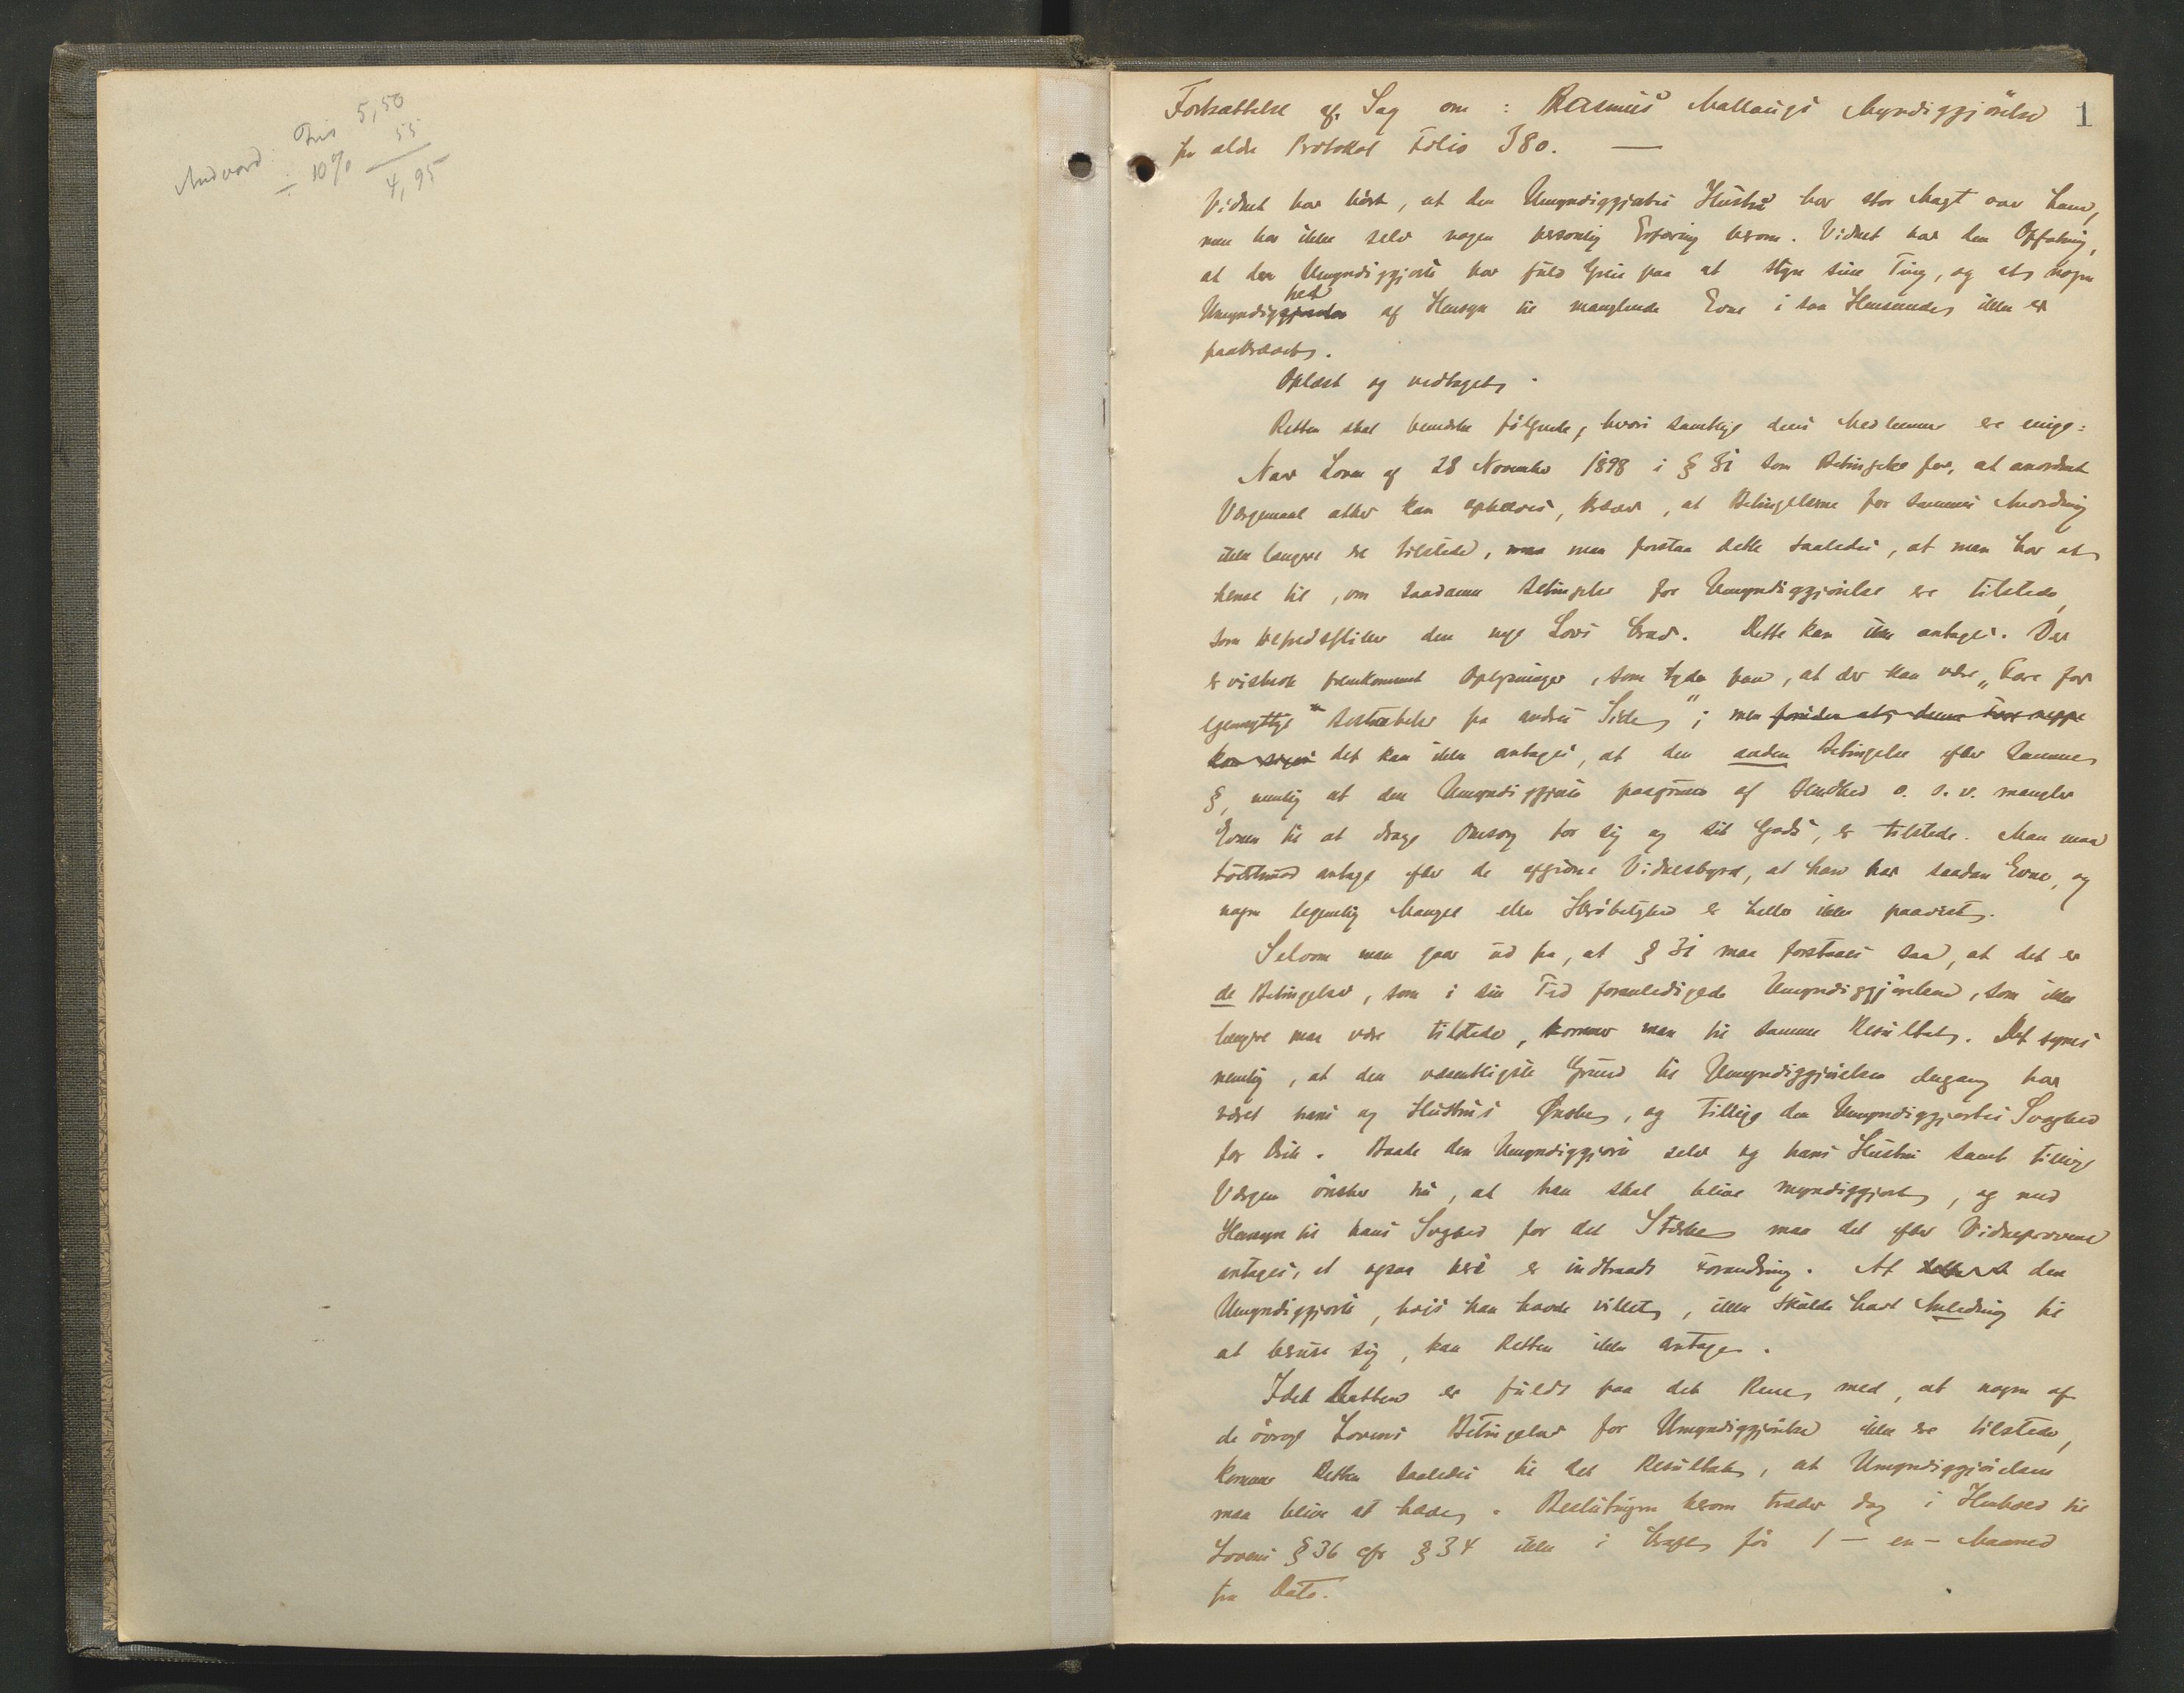 Andvord. Pris 5,50
÷ 10% 55
4,95
1
Fortsættelse af Sag om : Rasmus Mallaugs Myndiggjørelse
fra ældre Protokol Folio 380. —
Vidnet har hørt, at den Umyndiggjortes Hustru har stor Magt over ham,
men har ikke selv nogen personlig Erfaring herom. Vidnet har den Opfatning,
at den Umyndiggjorte har fuld Greie paa at styre sine Ting, og at nogen
Umyndighed af Hensyn til manglende Evne i saa Henseende ikke er
paakrævet.
Oplæst og vedtaget.
Retten skal bemærke følgende, hvori samtlige dens Medlemmer ere enige:
Naar Loven af 28 November 1898 i § 31 som Betingelse for, at anordnet
Værgemaal atter kan ophæves, kræver, at Betingelserne for sammes Anordning
ikke længere ere tilstede, maa man forstaa dette saaledes, at man har at
hense til, om saadanne Betingelser for Umyndiggjørelse ere tilstede,
som tilfredsstiller den nye Lovs Krav. Dette kan ikke antages. Der
er vistnok fremkommet Oplysninger, som tyder paa, at der kan være „Fare for
egennyttige Bestræbelser fra andres Side"; men foruden at denne Fare neppe
kan siges det kan ikke antages, at den anden Betingelse efter samme
§, nemlig at den Umyndiggjorte paagrund af Blindhed o. s. v. mangler
Evnen til at drage Omsorg for sig og sit Gods, er tilstede. Man maa
tvertimod antage efter de afgivne Vidnesbyrd, at han har saadan Evne, og
nogen legemlig Mangel eller Skrøbelighed er heller ikke paavist.
Selvom man gaar ud fra, at § 31 maa forstaaes saa, at det er
de Betingelser, som i sin Tid foranledigede Umyndiggjørelsen, som ikke
længere maa være tilstede, kommer man til samme Resultat. Det synes
nemlig, at den væsentligste Grund til Umyndiggjørelsen dengang har
været hans og Hustrus Ønske, og tillige den Umyndiggjortes Svaghed
for Drik. Baade den Umyndiggjorte selv og hans Hustru samt tillige
Værgen ønsker nu, at han skal blive myndiggjort, og med
Hensyn til hans Svaghed for det Stærke maa det efter Vidneprovene
antages, at ogsaa heri er indtraadt Forandring. At den
Umyndiggjorte, hvis han havde villet, ikke skulde havt Anledning til
at beruse sig, kan Retten ikke antage.
Idet Retten er fuldt paa det Rene med, at nogen af
de øvrige Lovens Betingelser for Umyndiggjørelse ikke ere tilstede,
kommer Retten saaledes til det Resultat, at Umyndiggjørelsen
maa blive at hæve. Beslutningen herom træder dog i Henhold til
Lovens § 36 cfr § 34 ikke i Kraft før 1 – en – Maaned
fra Dato.